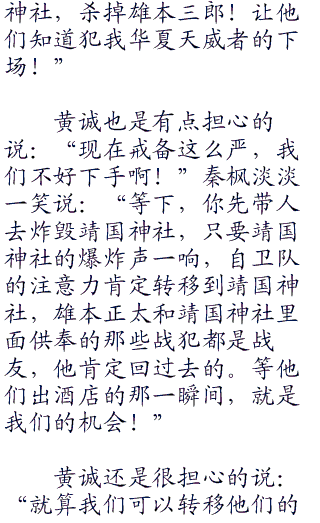 神社，杀掉雄本三郎！让他
们知道犯我华夏天威者的下
场！”
黄诚也是有点担心的
说：“现在戒备这么严，我
们不好下手啊！”秦枫淡淡
一笑说：“等下，你先带人
去炸毁靖国神社，只要靖国
神社的爆炸声一响，自卫队
的注意力肯定转移到靖国神
社，雄本正太和靖国神社里
面供奉的那些战犯都是战
友，他肯定回过去的。等他
们出酒店的那一瞬间，就是
我们的机会！”
黄诚还是很担心的说：
“就算我们可以转移他们的